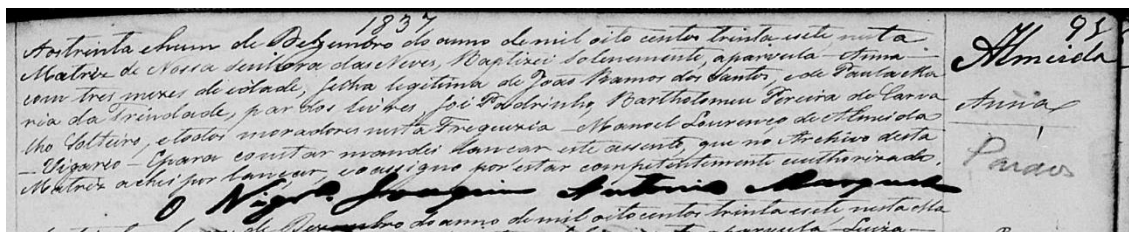 1837
Aos trinta e hum de Dezembro do anno de mil oito centos trinta e sete nesta
Matriz de Nossa Senhora das Neves, Baptizei Solenemente, a parvula Anna -
com tres mezes de idade, filha legitima de João Ramos dos Santos, e de Paula Ma
ria da Trindade, pardos livres, foi Padrinho, Bartholomeu Pereira de Carva
lho Solteiro, e todos moradores nesta Freguezia - Manoel Lourenço de Almeida
- Vigario - E para constar mandei lançar este assento, que no Archivo desta
Matriz achei por lançar, e o assigno por estar competentemente authorizado.
O Vigr.º Joaquim Antonio Marques
de Dezembro do anno de mil oito centos trinta e sete nesta Ma
parvula Luiza -
95
Almeida
Anna
Pardos